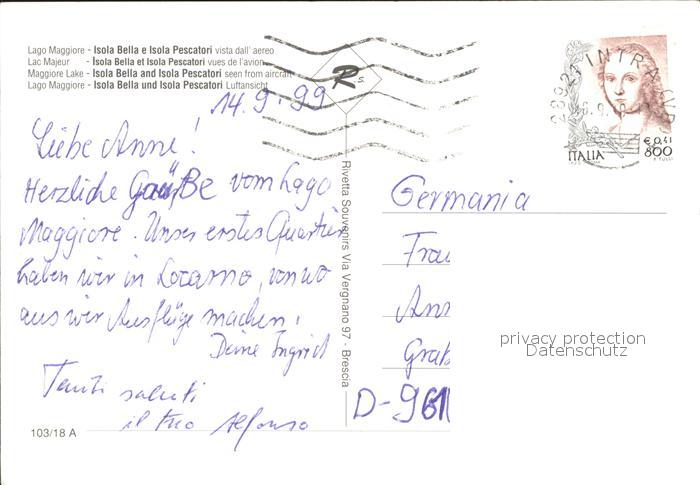 Lago Maggiore - Isola Bella e Isola Pescatori vista dall' aereo
Lac Majeur - Isola Bella et Isola Pescatori vues de l'avion
Maggiore Lake - Isola Bella and Isola Pescatori seen from aircraft
Lago Maggiore - Isola Bella und Isola Pescatori Luftansicht
R s.
14.9.99
Liebe Anne!
Herzliche Grüße vom Lago
Maggiore. Unser erstes Quartier
haben wir in Locarno, von wo
aus wir Ausflüge machen.
Deine Ingrid
Tanti saluti
il tuo Alfonso
103/18 A
Rivetta Souvenirs Via Vergnano 97 - Brescia
INTRA
ITALIA
€ 0,41
800
Germania
Frau
D-961
privacy protection
Datenschutz